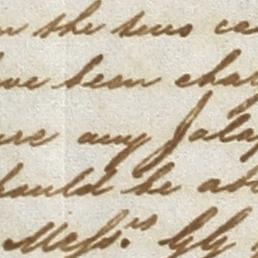 the two ca
ve been char
are any Jalap
should be ab
Mess.rs Gly